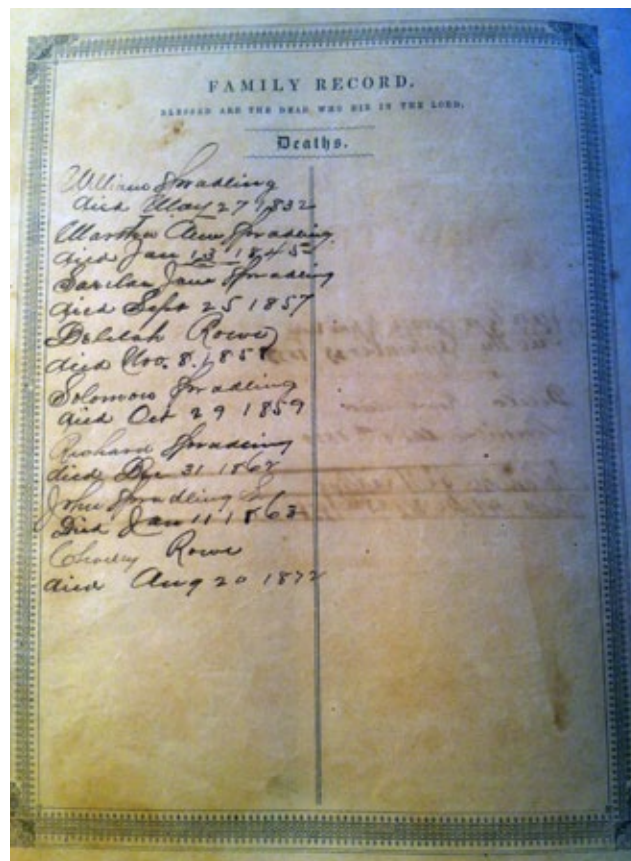 FAMILY RECORD.
BLESSED ARE THE DEAD WHO DIE IN THE LORD.
Deaths.
William Spradling
died May 27 1832
Martha Ann Spradling
died Jan 13 1845
Jane Spradling
died Sept 25 1857
Delilah Rowe
died Nov. 8. 1858
Solomon Spradling
died Oct 29 1859
Richard Spradling
died Dec 31 1862
John Spradling
Died Jan 11 1863
Rowe
died Aug 20 1872